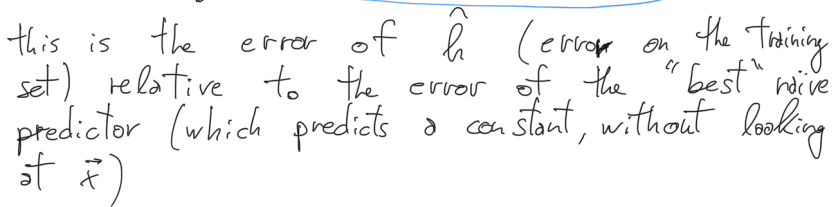 this is the error of ĥ (error on the training
set) relative to the error of the "best" naïve
predictor (which predicts a constant, without looking
at x⃗)